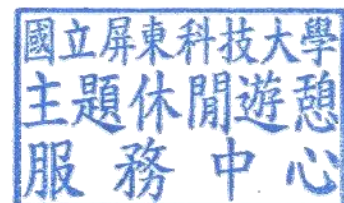 國立屏東科技大學
主題休閒遊憩
服務中心